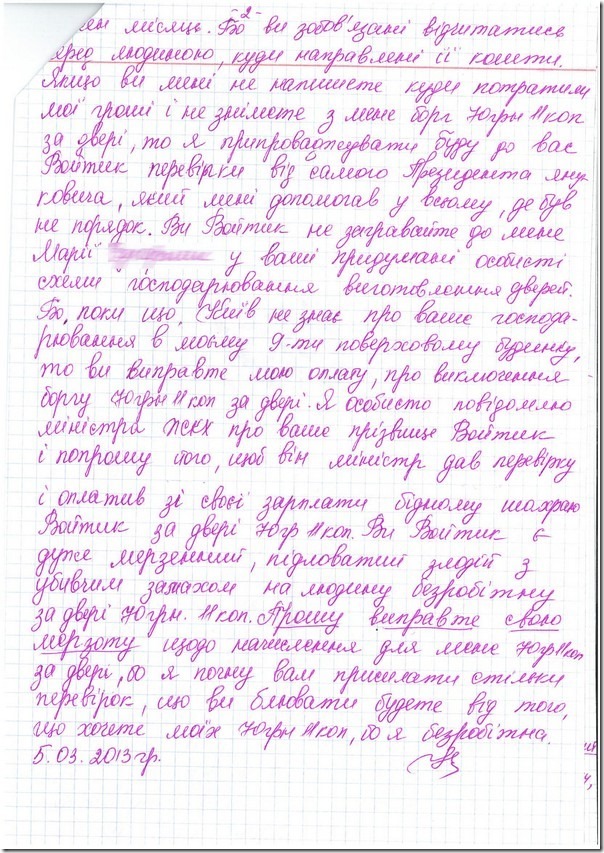 -2-
місяць. Бо ви зобов'язані відчитатись
перед людиною, куди направлені її кошти.
Якщо ви мені не напишете куди потратили
мої гроші і не знімете з мене борг 70грн 11коп
за двері, то я припроваджувати буду до вас
Войтик перевірки від самого Президента Яну-
ковича, який мені допомагав у всьому, де був
не порядок. Ви Войтик не загравайте до мене
Марії у ваші придумані особисті
схеми господарювання виготовлення дверей.
Бо, поки що, Київ не знає про ваше господа-
рювання в моєму 9-ти поверховому будинку,
то ви виправте мою оплату, про виключення
боргу 70грн 11коп за двері. Я особисто повідомлю
міністра ЖКХ про ваше прізвище Войтик
і попрошу його, щоб він міністр дав перевірку
і оплатив зі своєї зарплати бідному шахраю
Войтик за двері 70гр 11коп. Ви Войтик є
дуже мерзенний, підлуватий злодій з
убивчим замахом на людину безробітну
за двері 70грн. 11коп. Прошу виправте свою
мерзоту щодо начислення для мене 70гр 11коп
за двері, бо я почну вам присилати стільки
перевірок, що ви блювати будете від того,
що хочете моїх 70грн 11коп, бо я безробітна.
5.03.2013гр.